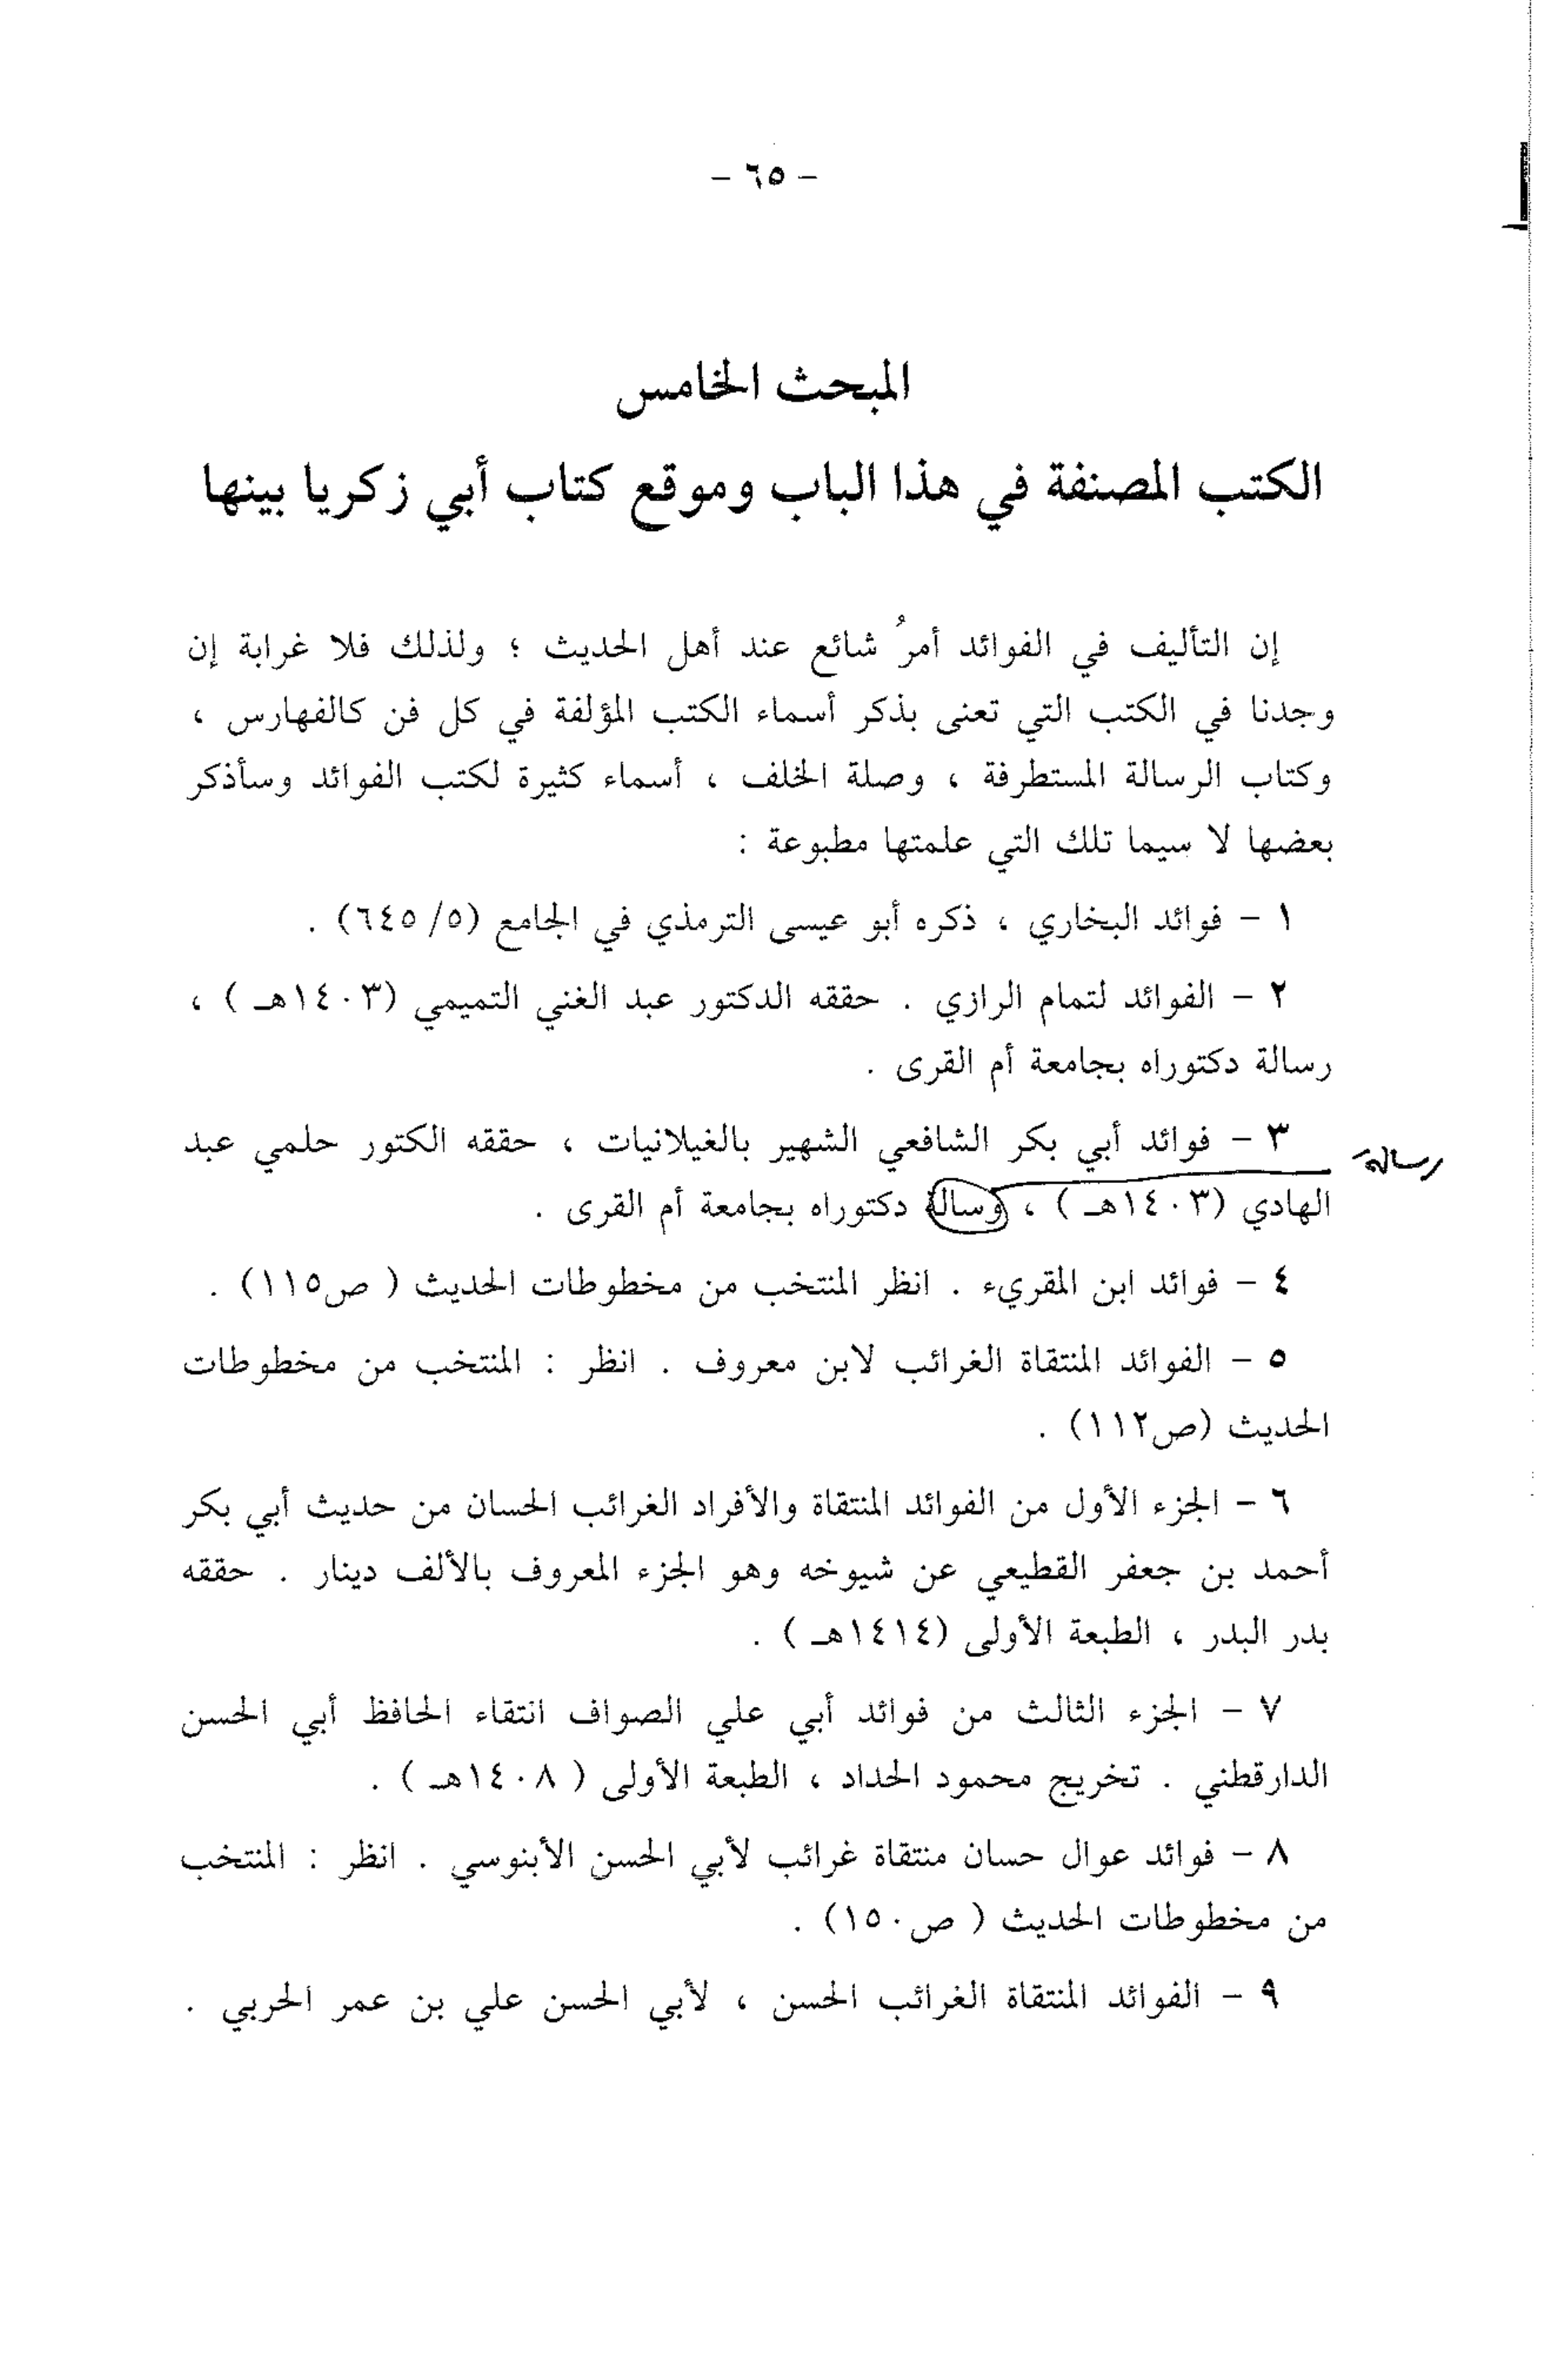 - ٦٥ -
المبحث الخامس
الكتب المصنفة في هذا الباب وموقع كتاب أبي زكريا بينها
إن التأليف في الفوائد أمرُ شائع عند أهل الحديث ؛ ولذلك فلا غرابة إن
وجدنا في الكتب التي تعنى بذكر أسماء الكتب المؤلفة في كل فن كالفهارس ،
وكتاب الرسالة المستطرفة ، وصلة الخلف ، أسماء كثيرة لكتب الفوائد وسأذكر
بعضها لا سيما تلك التي علمتها مطبوعة :
١ - فوائد البخاري ، ذكره أبو عيسى الترمذي في الجامع (٥/ ٦٤٥) .
٢ - الفوائد لتمام الرازي . حققه الدكتور عبد الغني التميمي (١٤٠٣هـ ) ،
رسالة دكتوراه بجامعة أم القرى .
٣ - فوائد أبي بكر الشافعي الشهير بالغيلانيات ، حققه الكتور حلمي عبد
رسالة
الهادي (١٤٠٣هـ ) ، وسالة دكتوراه بجامعة أم القرى .
٤ - فوائد ابن المقريء . انظر المنتخب من مخطوطات الحديث ( ص١١٥) .
٥ - الفوائد المنتقاة الغرائب لابن معروف . انظر : المنتخب من مخطوطات
الحديث (ص١١٢) .
٦ - الجزء الأول من الفوائد المنتقاة والأفراد الغرائب الحسان من حديث أبي بكر
أحمد بن جعفر القطيعي عن شيوخه وهو الجزء المعروف بالألف دينار . حققه
بدر البدر ، الطبعة الأولى (١٤١٤هـ ) .
٧ - الجزء الثالث من فوائد أبي علي الصواف انتقاء الحافظ أبي الحسن
الدارقطني . تخريج محمود الحداد ، الطبعة الأولى ( ١٤٠٨هـ ) .
٨ - فوائد عوال حسان منتقاة غرائب لأبي الحسن الأبنوسي . انظر : المنتخب
من مخطوطات الحديث ( ص١٥٠) .
٩ - الفوائد المنتقاة الغرائب الحسن ، لأبي الحسن علي بن عمر الحربي .